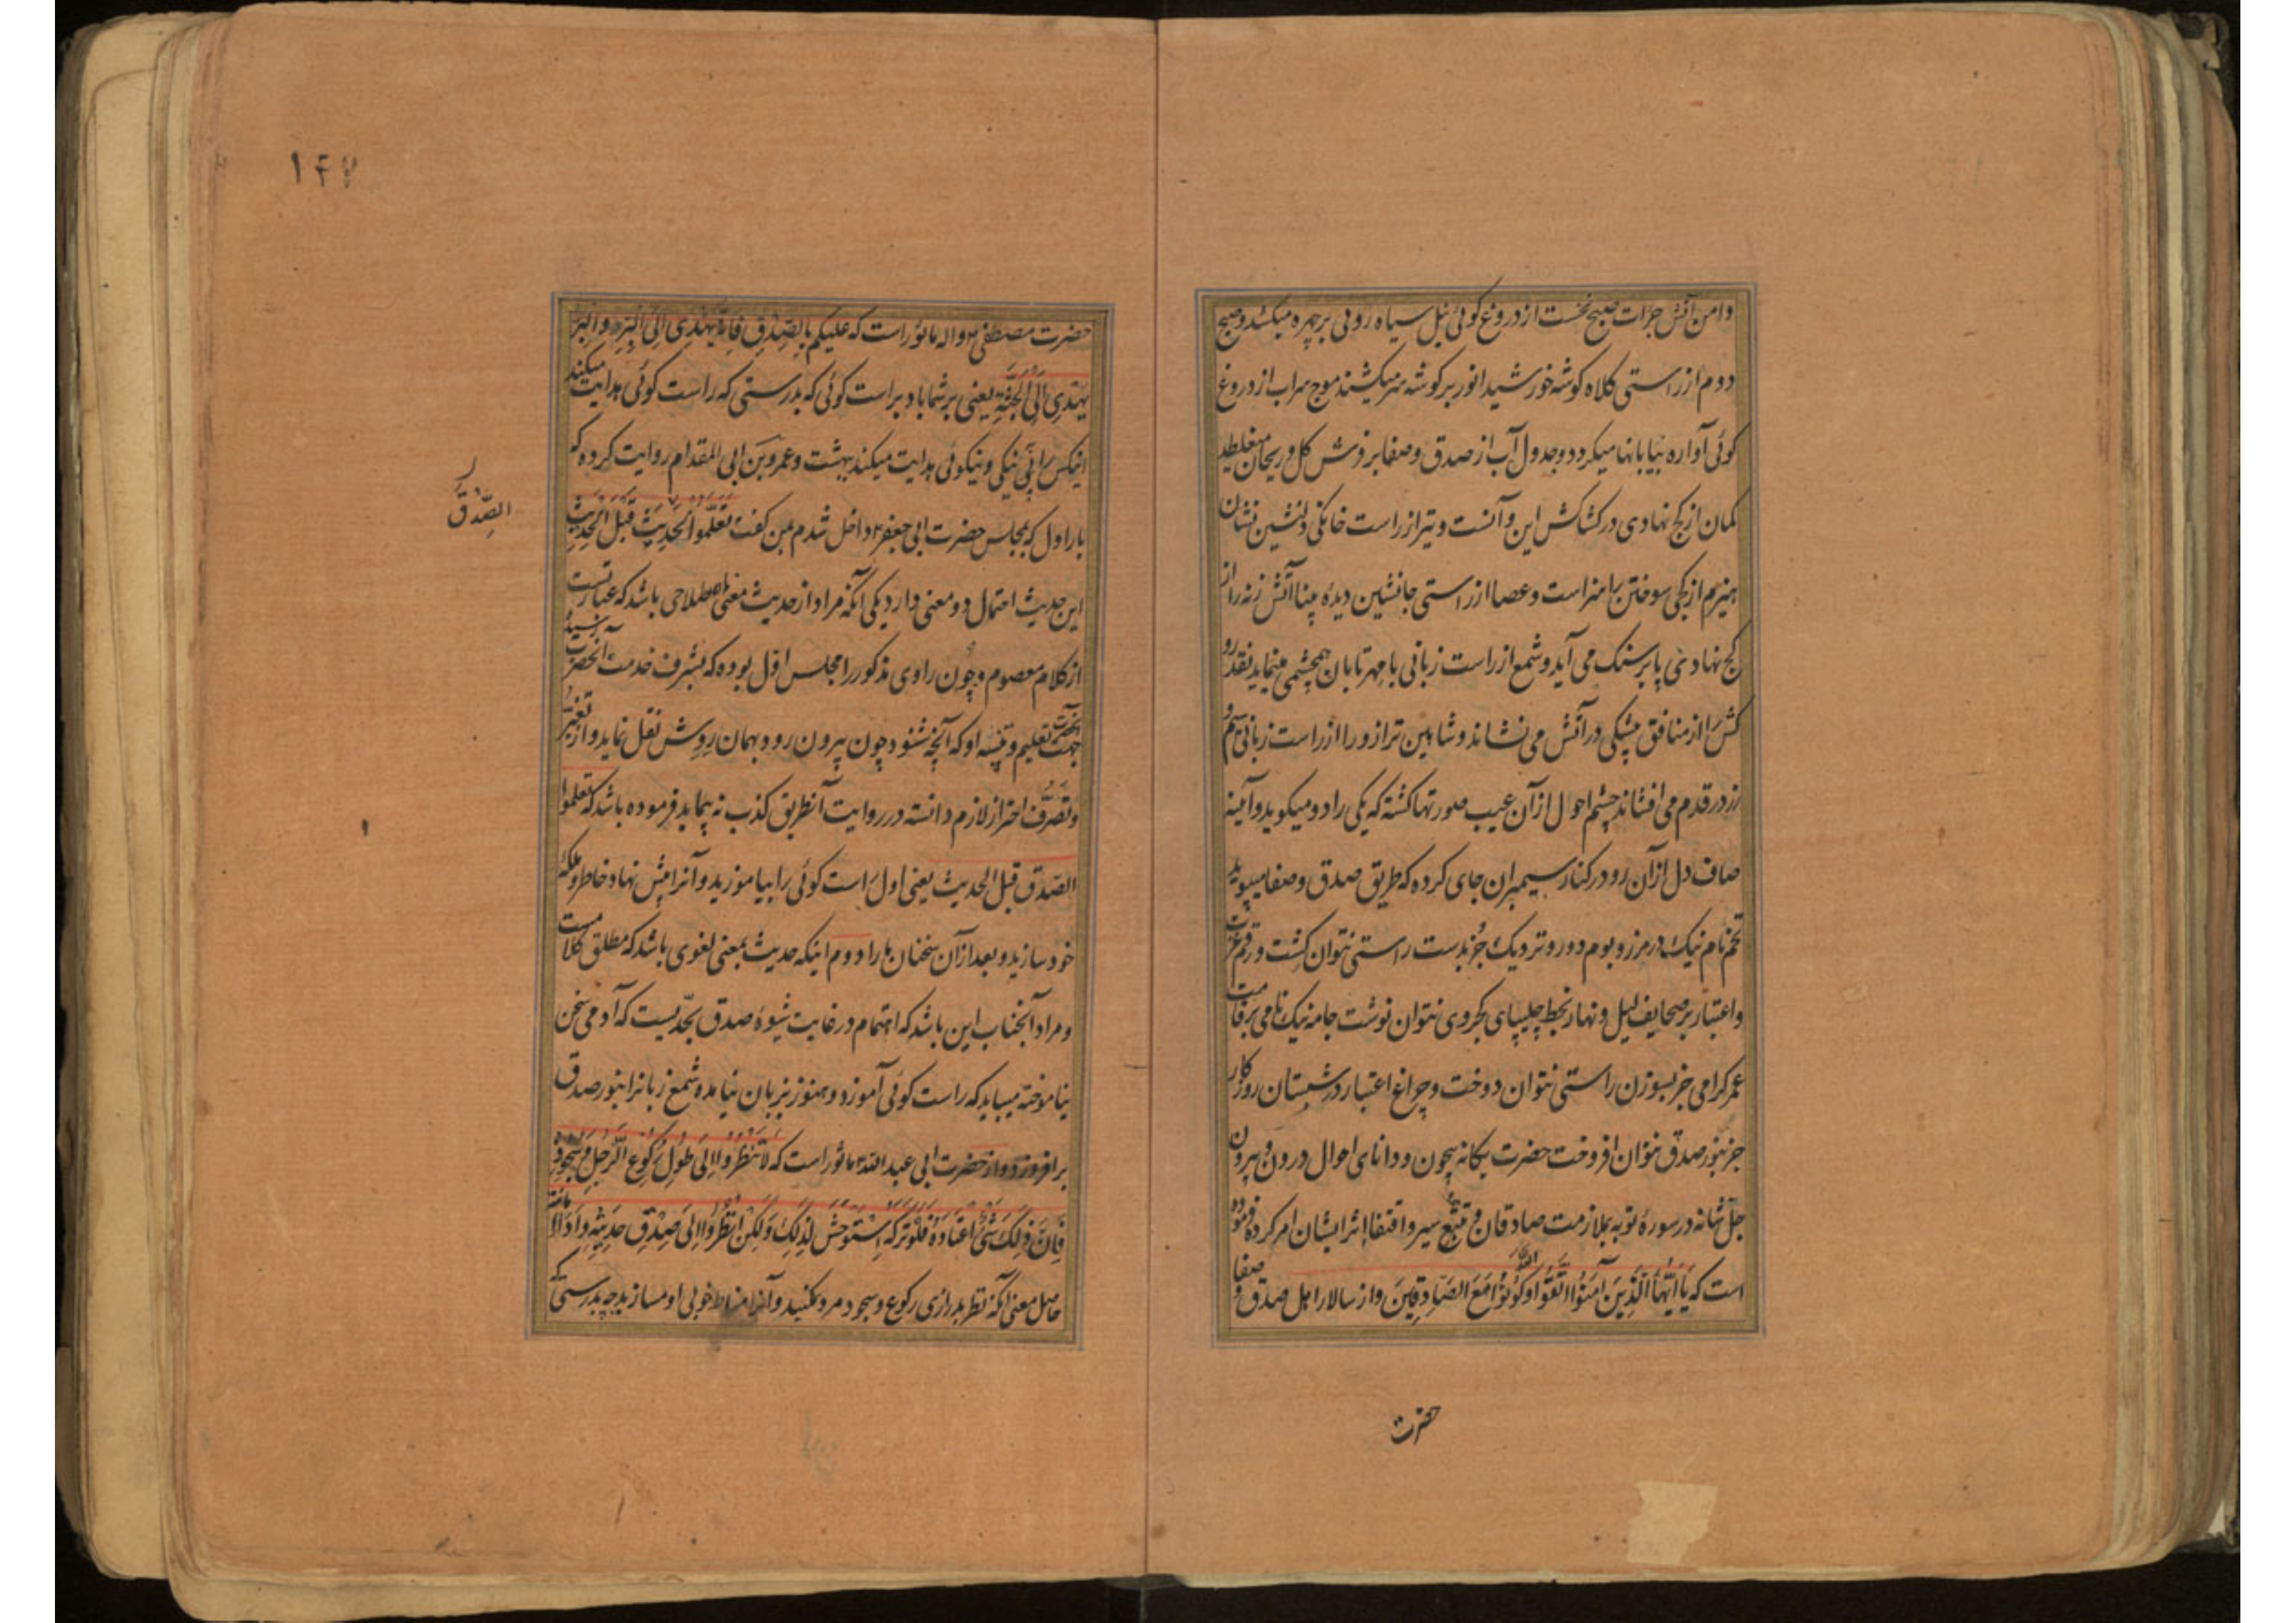 دامن آتش جرات صبح نخست از دروغ کوئی نیل سیاه روئی بر چهره میکشد و صبح
دوم از راستی کلاه کوشه خورشید انور بر کوشه سر میکشند موج سراب از دروغ
کوئی آواره بیابانها میکردد و جدول آب از صدق و صفا بر فرش کل و ریحان میغلطد
کمان از کج نهادی در کشاکش این و آنست و تیر از راست خانکی دلنشین نشان
هیزم از کجی سوختن را سزاست و عصا از راستی جانشین دیده بینا آتش زنه را از
کج نهادی پا بر سنک می آید و شمع از راست زبانی با مهر تابان همچشمی مینماید نقد رو
کش را از منافق پیشکی در آتش می نشاند و شاهین ترازو را از راست زبانی سیم و
زر در قدم می افشاند چشم احول از آن عیب صورتها کشته که یکی را دو میکوید و آئینه
صاف دل از آن رو در کنار سیمبران جای کرده که طریق صدق و صفا میپوید
تخم نام نیک در مرز و بوم دور و نزدیک جز بدست راستی نتوان کشت و رقم عزت
و اعتبار بر صحایف لیل و نهار بخط چلیپای کجروی نتوان نوشت جامه نیک نامی بر قامت
عمر کرامی جز بسوزن راستی نتوان دوخت و چراغ اعتبار در شبستان روزکار
جز بنور صدق نتوان افروخت حضرت یکانه بیچون و دانای احوال درون و بیرون
جل شانه در سوره توبه بملازمت صادقان و تتبع سیر و اقتفا اثر ایشان امر کرده فرموده
است که یَا اَیُّهَا الَّذِینَ آمَنُوا اتَّقُوا اللّهَ وَکُونُوا مَعَ الصَّادِقِینَ و از سالار اهل صدق و صفا
حضرت
۱۴۷
حضرت مصطفی ص واله ماثور است که علیکم بِالصِّدْقِ فَاِنَّهُ یَهْدِی اِلَی الْبِرِّ وَالْبِرُّ
یَهْدِی اِلَی الْجَنَّةِ یعنی بر شما باد براست کوئی که بدرستی که راست کوئی هدایت میکند
اینکس را به نیکی و نیکوئی هدایت میکند ببهشت و عمرو بن ابی المقدام روایت کرده که
بار اول که بمجلس حضرت ابی جعفر ع داخل شدم بمن کفت تَعَلَّمُوا الْحَدِیثَ قَبْلَ الْحَدِیثِ
الصِّدْقَ
این حدیث احتمال دو معنی دارد یکی آنکه مراد از حدیث معنی اصطلاحی باشد که عبارتست
از کلام معصوم و چون راوی مذکور را مجلس اول بوده که بشرف خدمت آنحضرت رسیده
آنحضرت جهت تعلیم و تنبیه او که آنچه شنود چون بیرون رود بهمان روش نقل نماید و از تغییر
و تصرف احتراز لازم دانسته در روایت آن طریق کذب نه پیماید فرموده باشد که تعلموا
الصدق قبل الحدیث یعنی اول راست کوئی را بیاموزید و آنرا پیش نهاد خاطر و ملکه
خود سازید و بعد از آن سخنان ما را دوم اینکه حدیث بمعنی لغوی باشد که مطلق کلامست
و مراد آنجناب این باشد که اهتمام در رعایت شیوه صدق بحدیست که آدمی سخن
نیاموخته میباید که راست کوئی آموزد و هنوز بزبان نیامده شمع زبانرا بنور صدق
برافروزد و از حضرت ابی عبدالله ع ماثور است که لَا تَنْظُرُوا اِلَی طُولِ رُکُوعِ الرَّجُلِ وَ سُجُودِهِ
فَاِنَّ ذٰلِکَ شَیْءٌ اعْتَادَهُ فَلَوْ تَرَکَهُ اسْتَوْحَشَ لِذٰلِکَ وَلٰکِنِ انْظُرُوا اِلَی صِدْقِ حَدِیثِهِ وَ اَدَاءِ الامانته
حاصل معنی آنکه نظر بدرازی رکوع و سجود مرد مکنید و آنرا مناط خوبی او مسازید چه بدرستی که